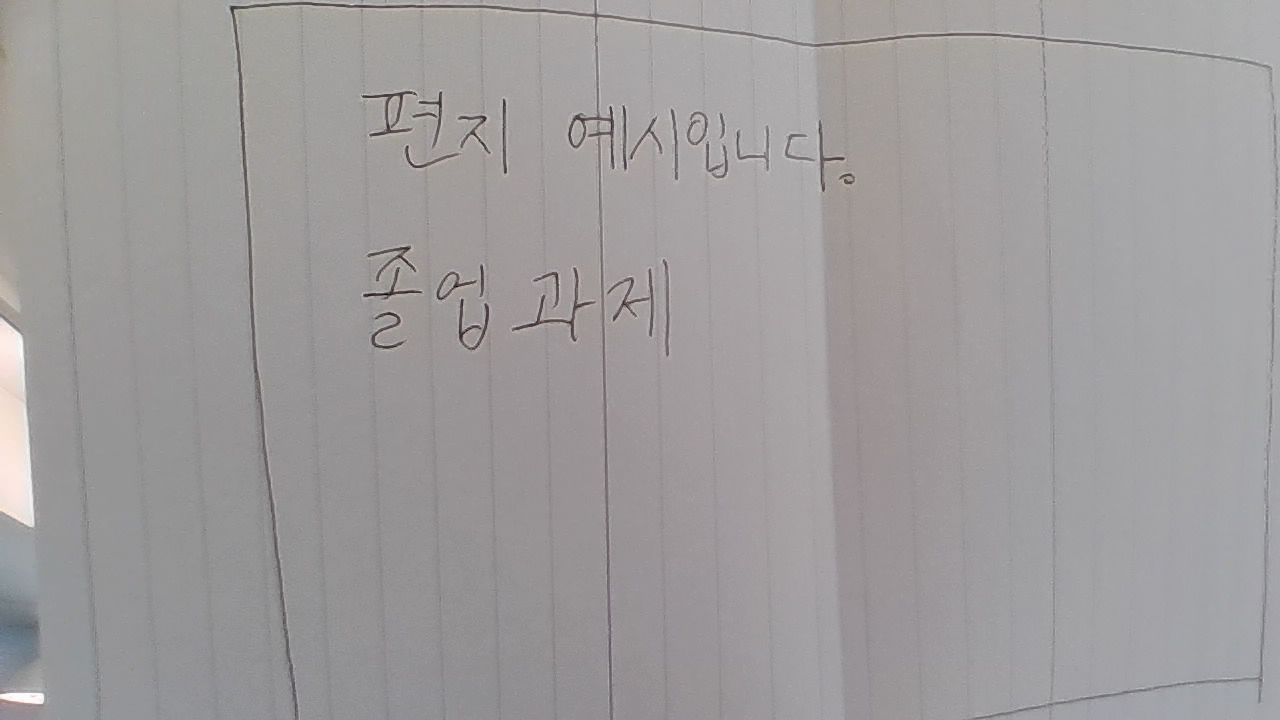 편지 예시입니다.
졸업 과제